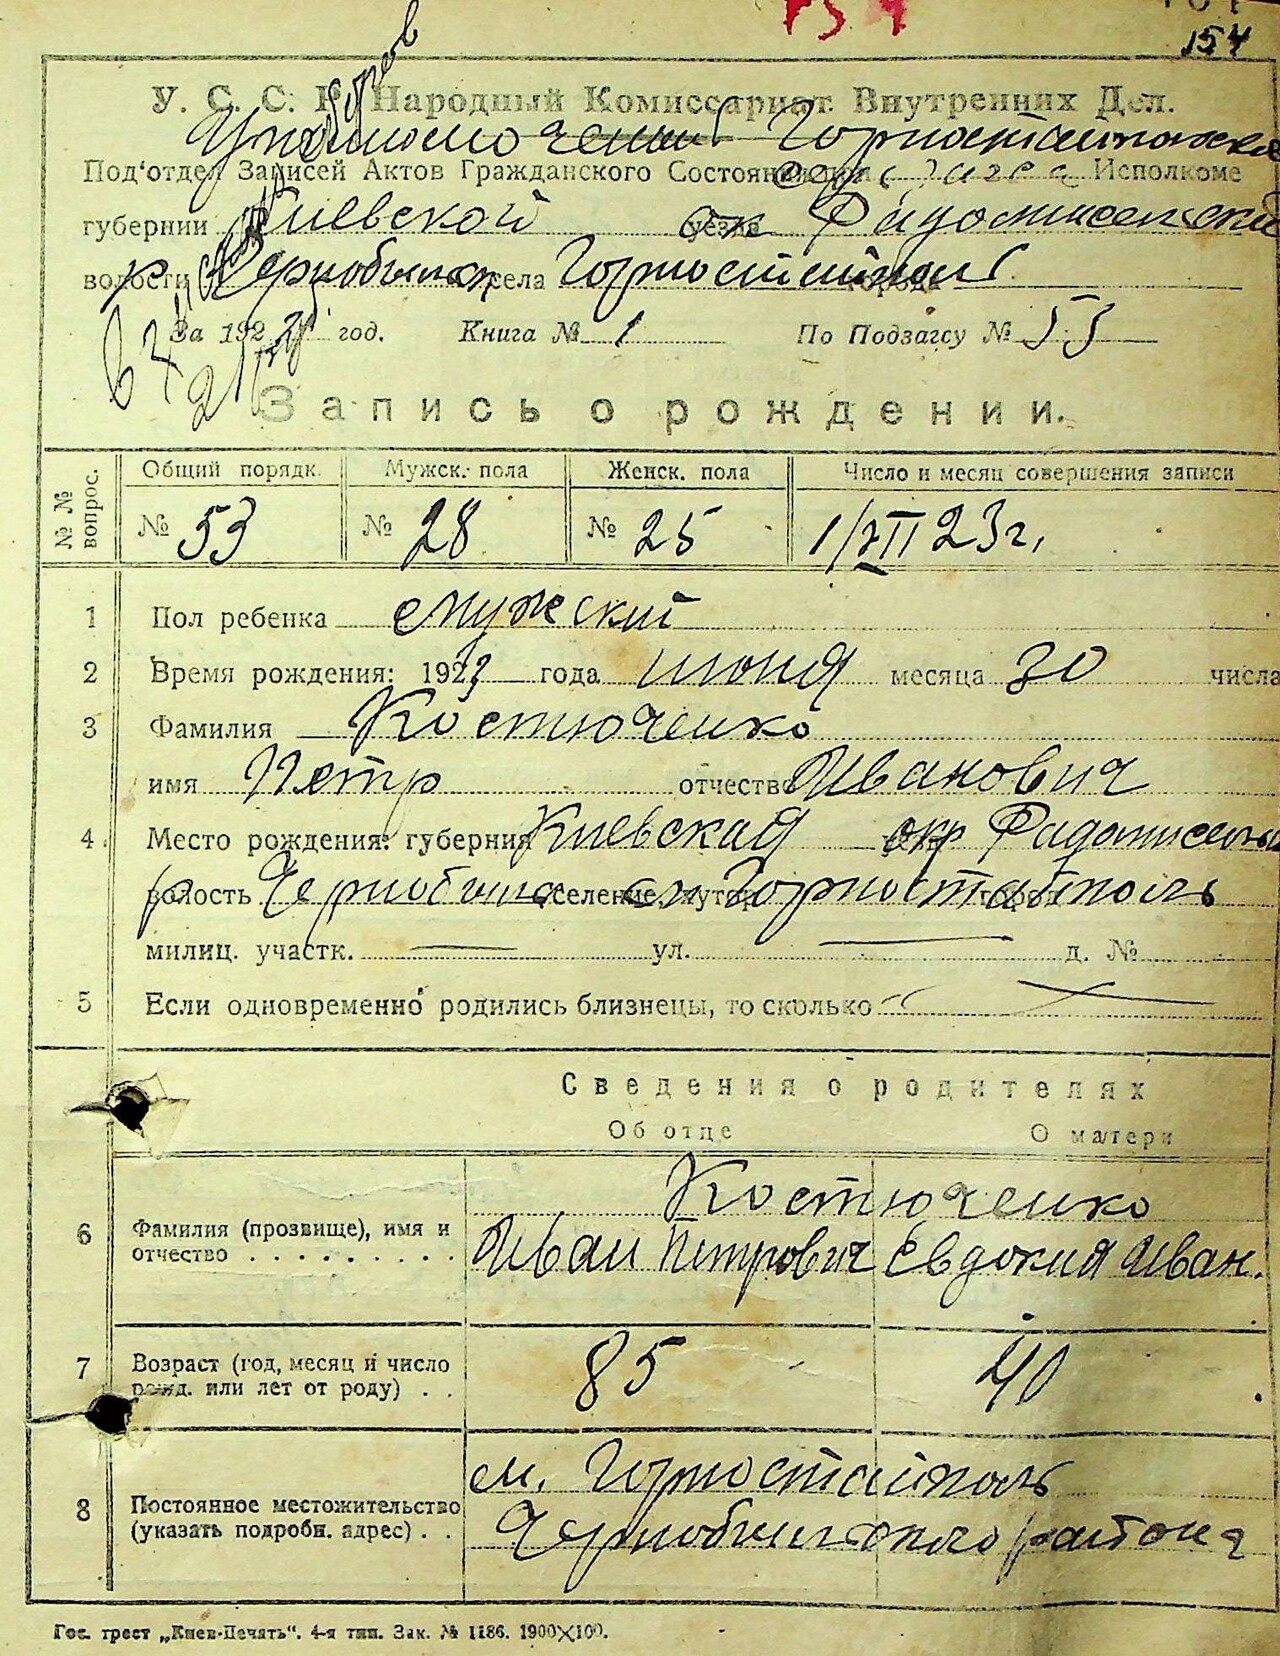 154
У. С. С. Р. Народный Комиссариат Внутренних Дел.
Под'отдел Записей Актов Гражданского Состояния при Исполкоме
губернии Киевской уезда
волости села Горностайполь города
За 192 год. Книга № 1 По Подзагсу № 53
Запись о рождении.
№ № вопрос. Общий порядк. Мужск. пола Женск. пола Число и месяц совершения записи
№ 53 № 28 № 25 1/VII 23 г.
1 Пол ребенка мужский
2 Время рождения: 1923 года июня месяца 30 числа
3 Фамилия Костюченко
имя Петр отчество Иванович
4 Место рождения: губерния Киевская окр
волость селение, хутор Горностайполь
милиц. участк. — ул. — д. №
5 Если одновременно родились близнецы, то сколько —
Сведения о родителях
Об отце О матери
Костюченко
6 Фамилия (прозвище), имя и отчество Иван Петрович Евдокия Иван.
7 Возраст (год, месяц и число рожд. или лет от роду) 85 40
м. Горностайполь
8 Постоянное местожительство (указать подробн. адрес) Чернобильского района
Гос. трест „Киев-Печать“. 4-я тип. Зак. № 1186. 1900×100.